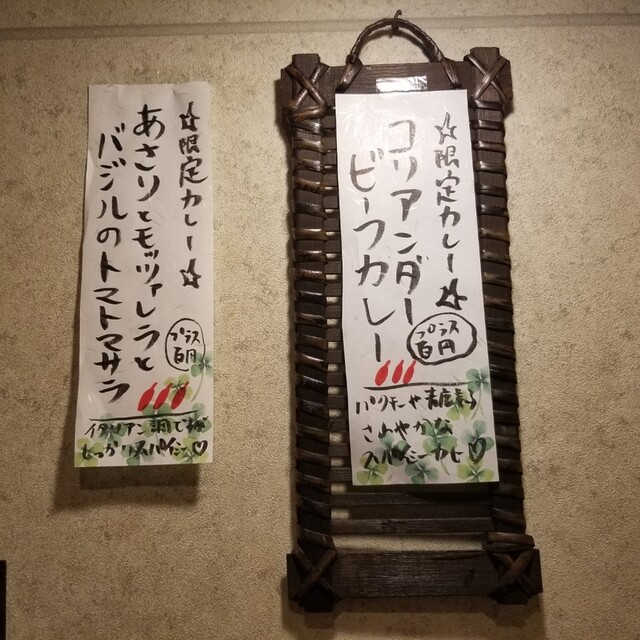 ☆限定カレー☆
コリアンダー
ビーフカレー
プラス
百円
パクチーや青唐香る
さわやかな
スパイシーカレー♡
☆限定カレー☆
あさりとモッツァレラと
バジルのトマトマサラ
プラス
百円
イタリアン調で
しっかりスパイシー♡